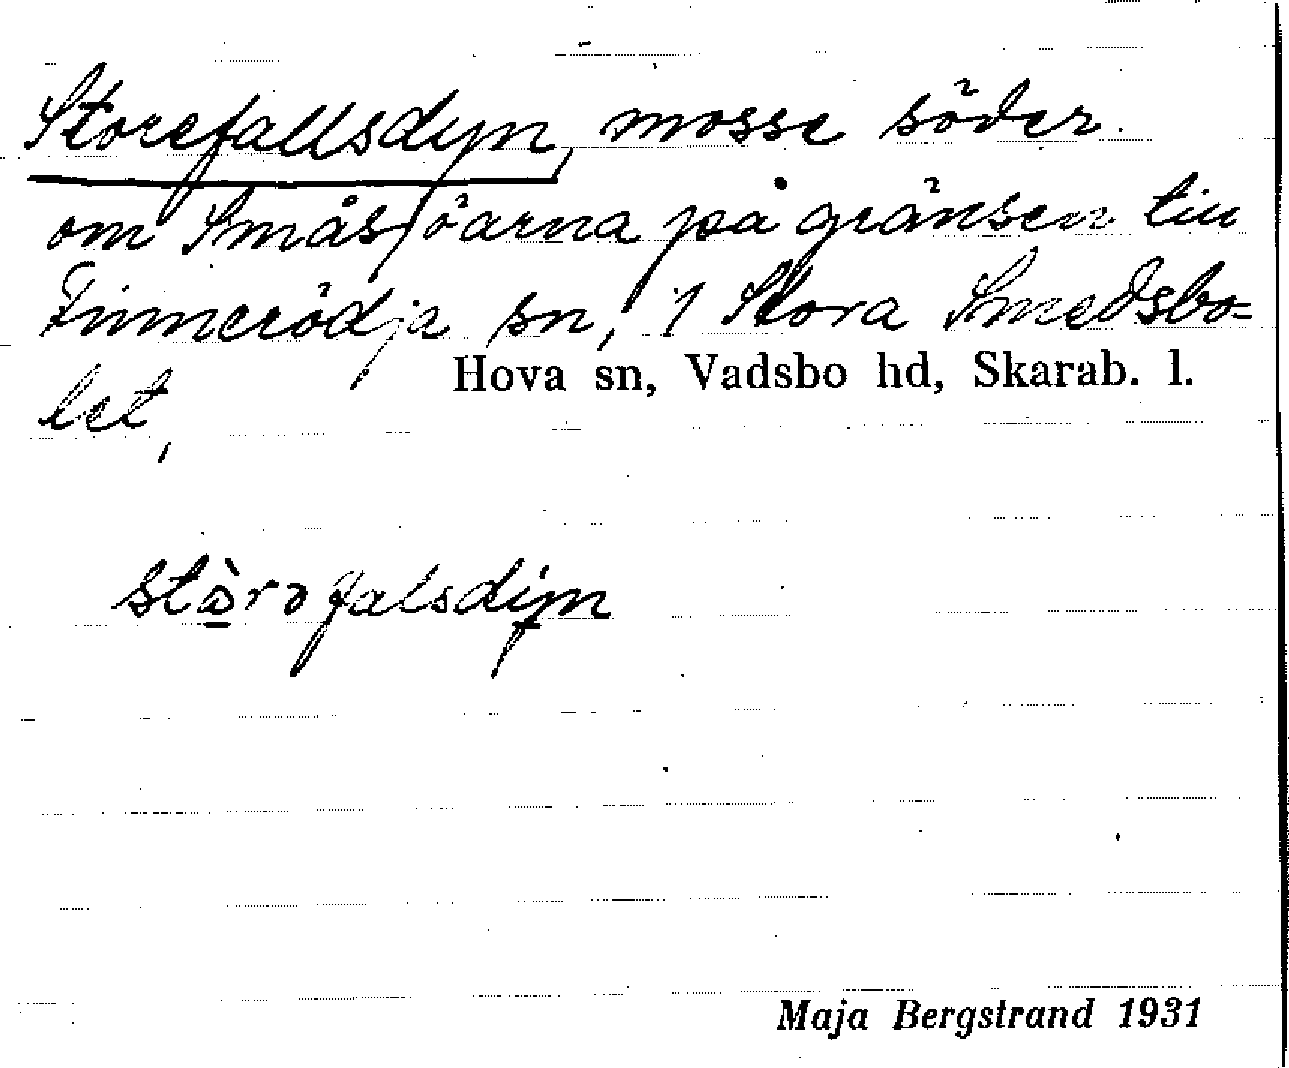 Storefallsdyn, mosse söder
om Småsjöarna på gränsen till
Finnerödja sn, 1 Stora Smedsbo-
Hova sn, Vadsbo hd, Skarab. l.
let,
stòrəfalsdyn
Maja Bergstrand 1931